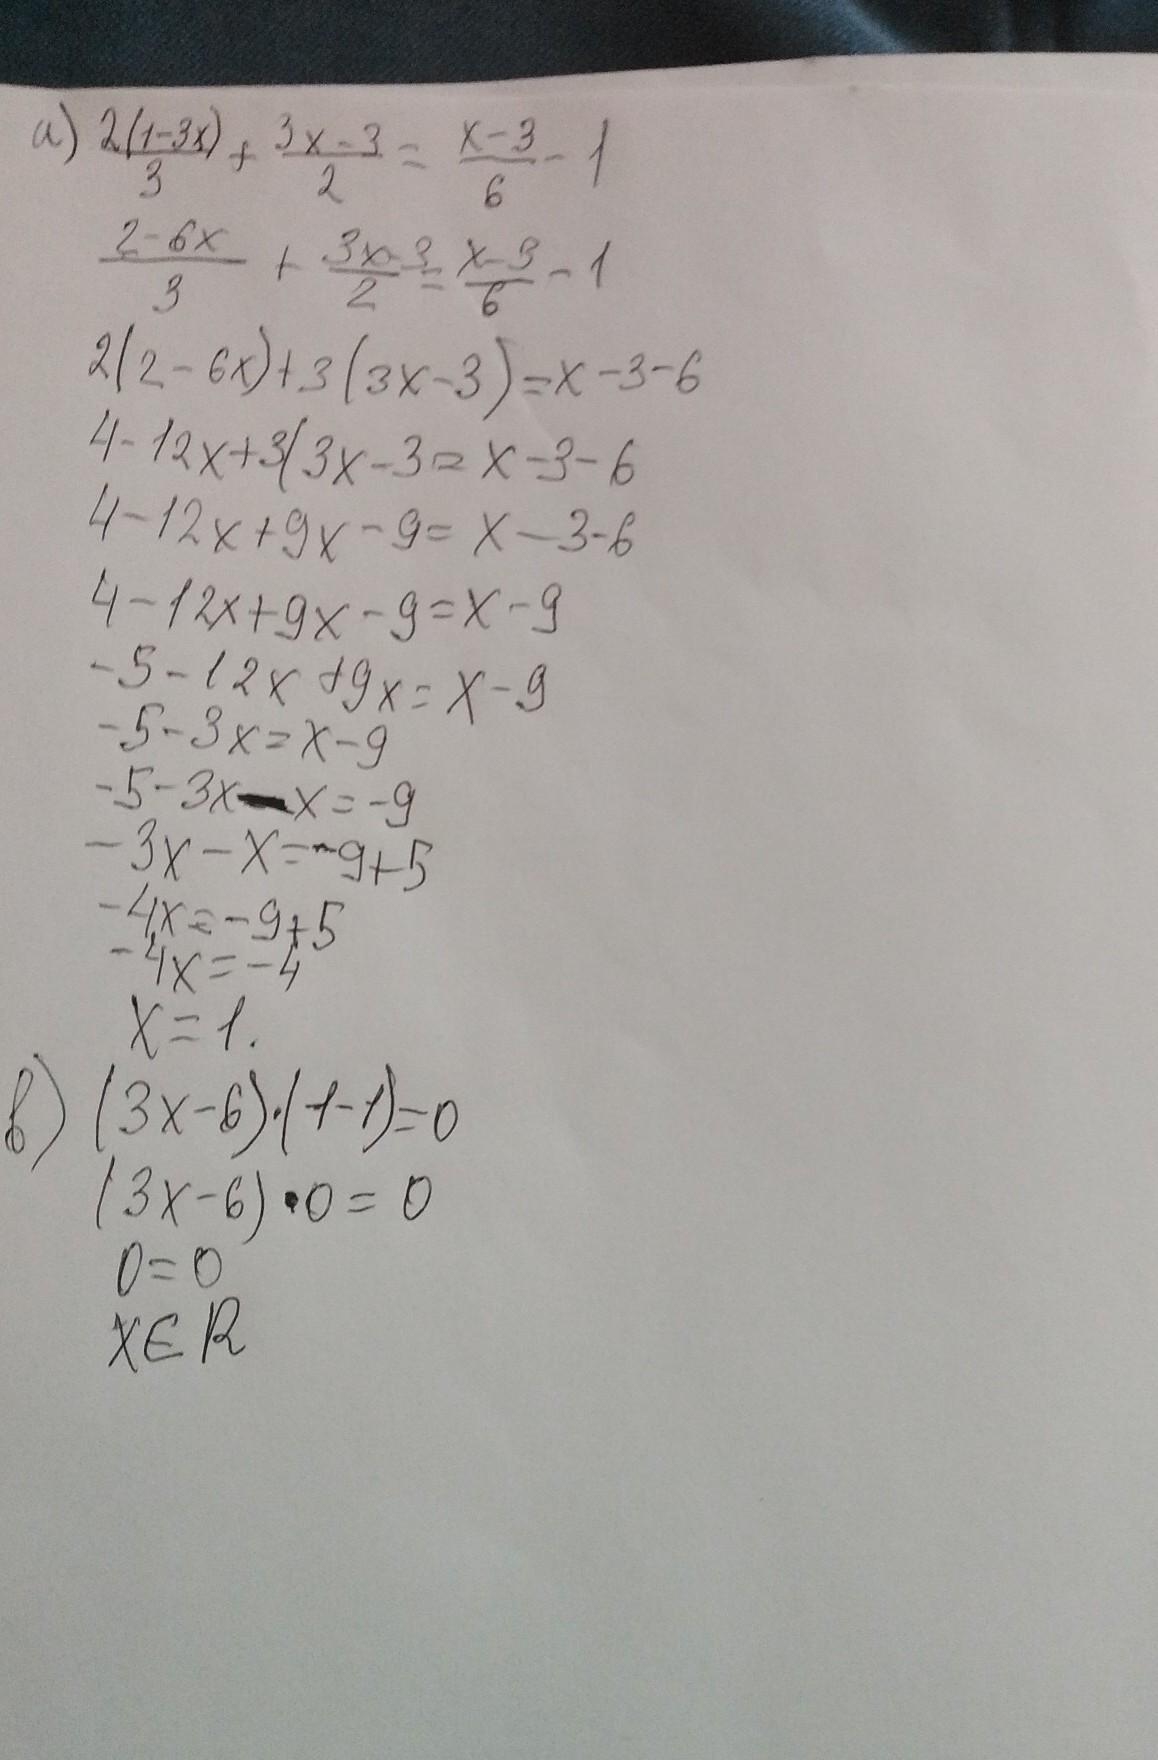 а) 2(1-3x)/3 + 3x-3/2 = x-3/6 - 1
2-6x/3 + 3x-3/2 = x-3/6 - 1
2(2-6x)+3(3x-3)=x-3-6
4-12x+3(3x-3=x-3-6
4-12x+9x-9=x-3-6
4-12x+9x-9=x-9
-5-12x+9x=x-9
-5-3x=x-9
-5-3x-x=-9
-3x-x=-9+5
-4x=-9+5
-4x=-4
x=1.
в) (3x-6)·(1-1)=0
(3x-6)·0=0
0=0
x∈R